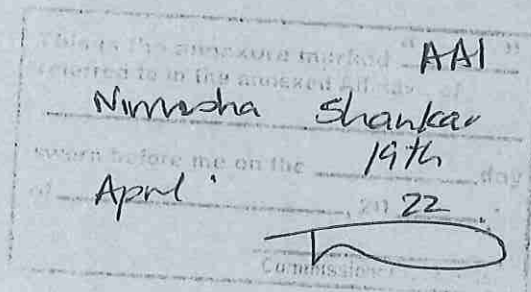 This is the annexure marked "AA1"
referred to in the annexed Affidavit of
Nimesha Shankar
sworn before me on the 19th day
of April, 2022.
Commissioner